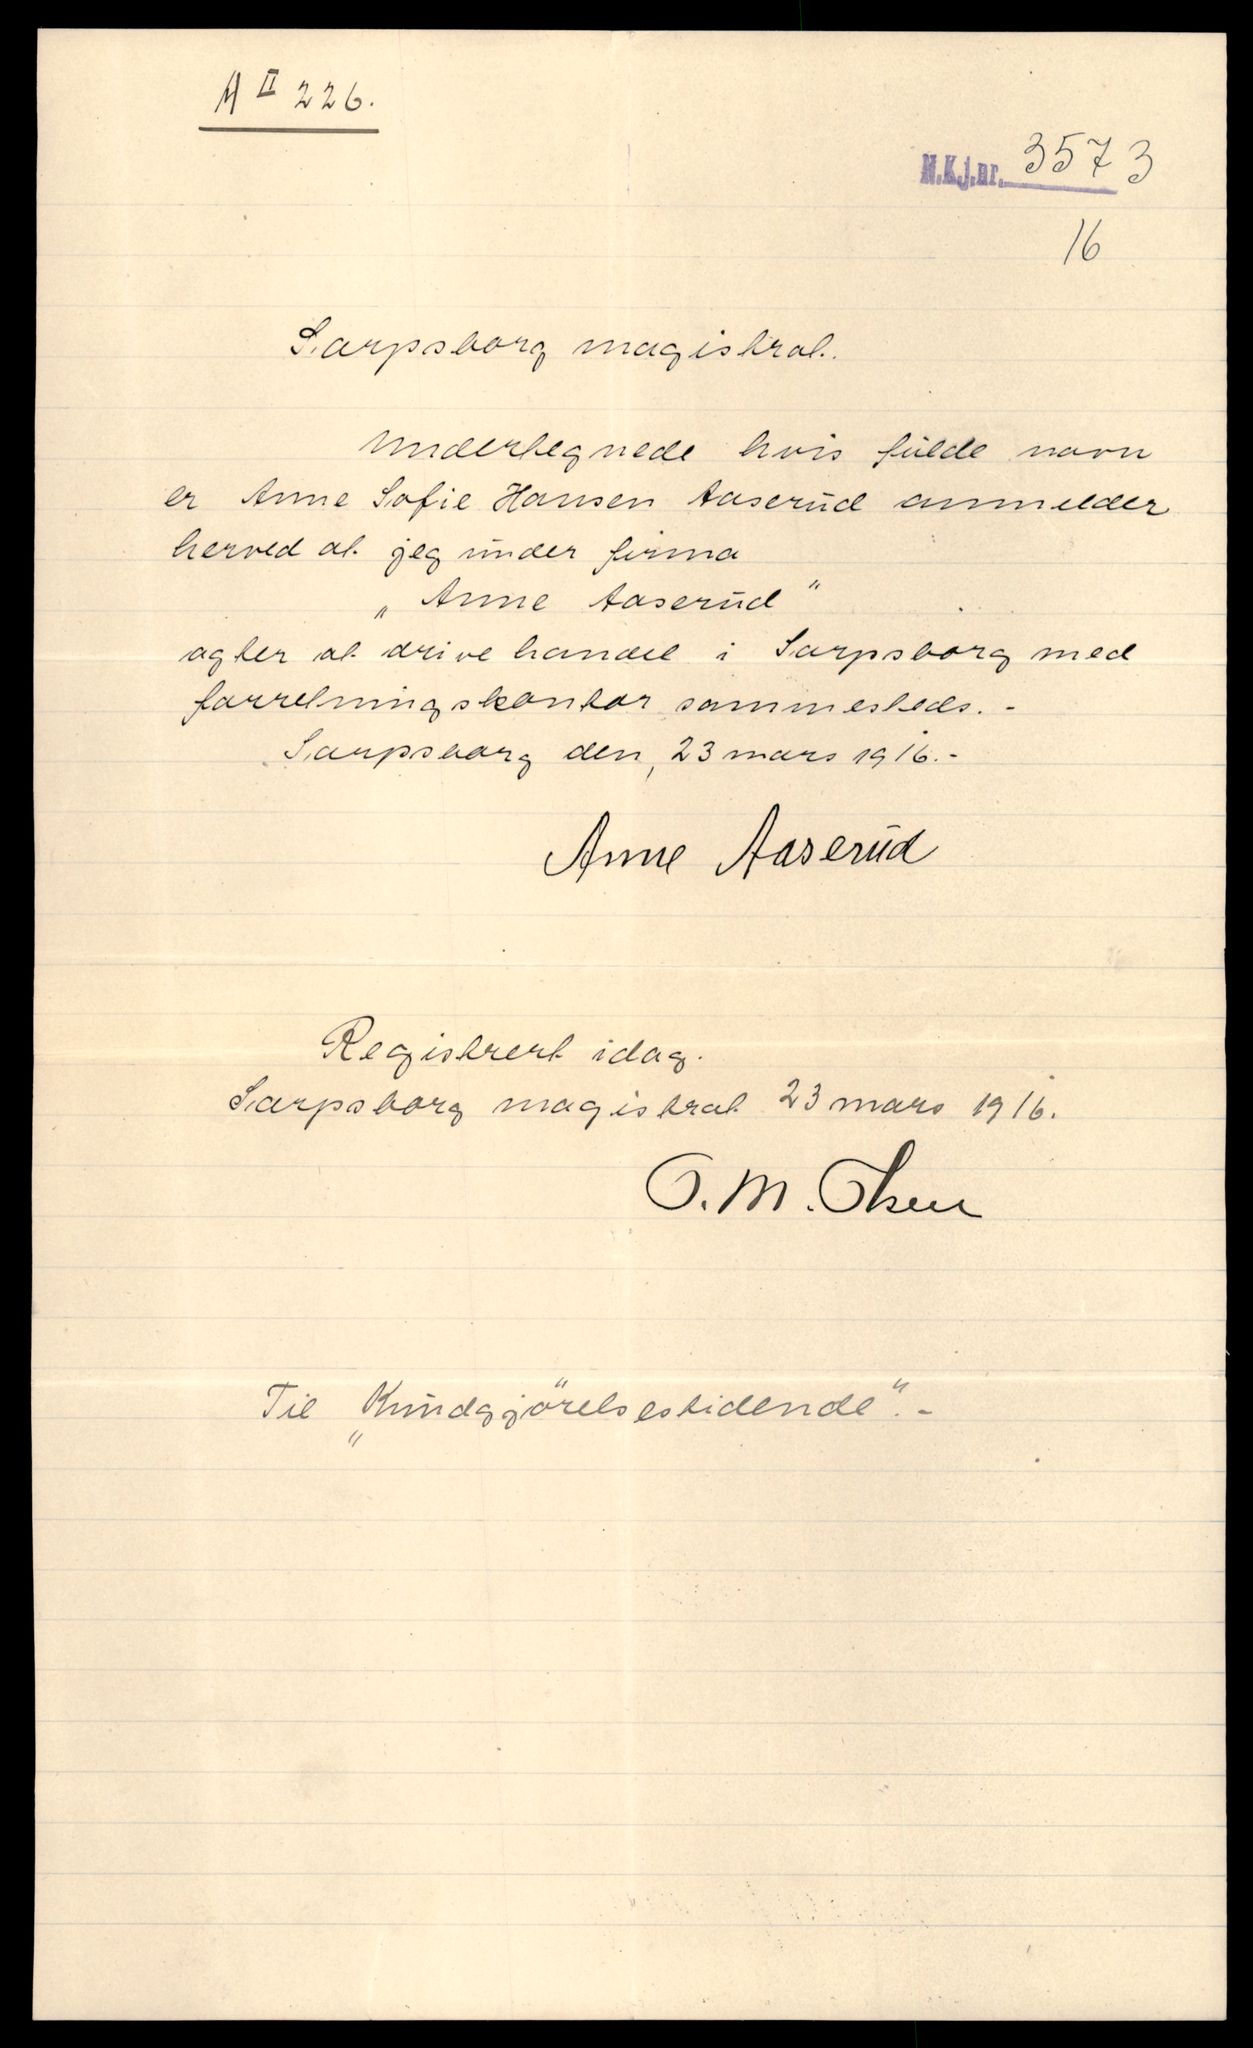 A II 226.
N.Kj.nr. 3573
16
Sarpsborg magistrat.
Undertegnede hvis fulde navn
er Anne Sofie Hansen Aaserud anmelder
herved at jeg under firma
„Anne Aaserud"
agter at drive handel i Sarpsborg med
forretningskontor sammesteds. -
Sarpsborg den, 23 mars 1916. -
Anne Aaserud
Registrert idag.
Sarpsborg magistrat 23 mars 1916.
O. M. Olsen
Til „Kundgjörelsestidende". -